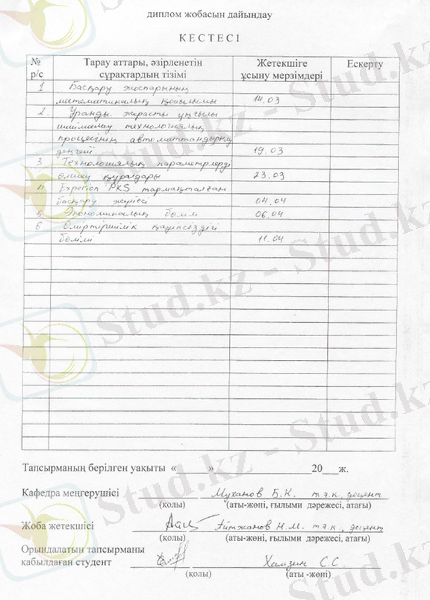 диплом жобасын дайындау
КЕСТЕСІ
№ р/с Тарау аттары, әзірленетін сұрақтардың тізімі Жетекшіге ұсыну мерзімдері Ескерту
1 Басқару жоспарының
математикалық қойылымы 14.03
2 Уранды жерасты ұңғылы
шаймалау технологиялық
процесінің автоматтандыру
деңгейі 19.03
3 Технологиялық параметрлерді
өлшеу құралдары 23.03
4 Experion PKS тармақталған
басқару жүйесі 04.04
5 Экономикалық бөлім 06.04
6 Өміртіршілік қауіпсіздігі
бөлімі 11.04
Тапсырманың берілген уақыты « » 20 ж.
Кафедра меңгерушісі Муханов Б.К. т.ғ.к., доцент
(қолы) (аты-жөні, ғылыми дәрежесі, атағы)
Жоба жетекшісі Айтжанов Н.М. т.ғ.к., доцент
(қолы) (аты-жөні, ғылыми дәрежесі, атағы)
Орындалатын тапсырманы
қабылдаған студент Хамзин С.С.
(қолы) (аты -жөні)
Stud.kz - Stud.kz